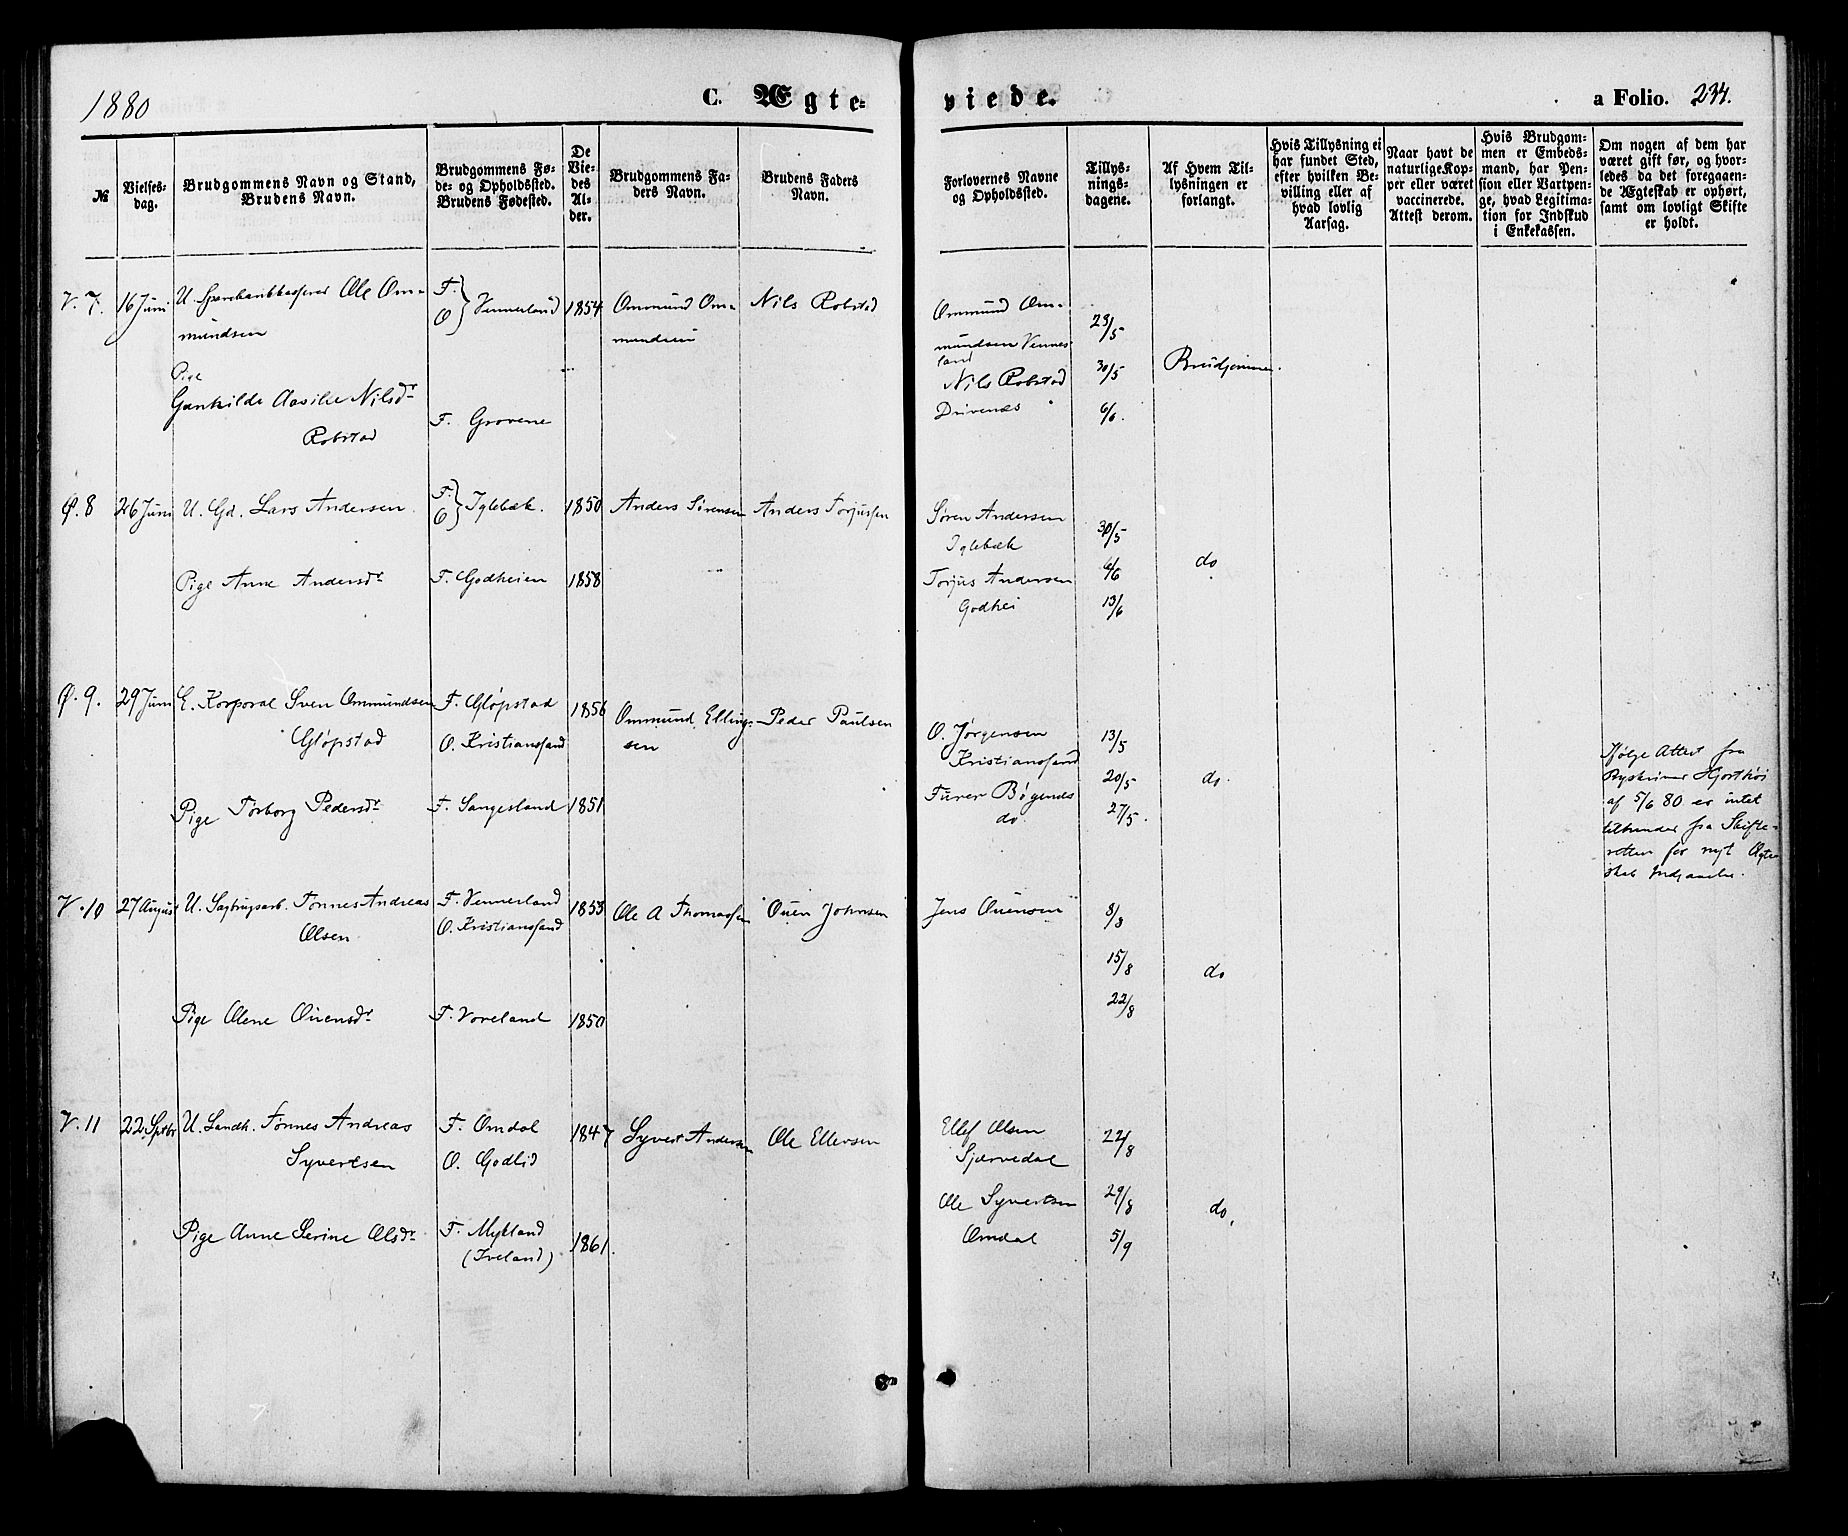 1880 C. Ægte= viede. a Folio. 234.
№
Vielses=
dag.
Brudgommens Navn og Stand,
Brudens Navn.
Brudgommens Fø=
de= og Opholdssted.
Brudens Fødested.
De
Vie=
des
Al=
der.
Brudgommens Fa=
ders Navn.
Brudens Faders
Navn.
Forlovernes Navne
og Opholdssted.
Tillys=
nings=
dagene.
Af Hvem Til=
lysningen er
forlangt.
Hvis Tillysning ei
har fundet Sted,
efter hvilken Be=
villing eller af
hvad lovlig
Aarsag.
Naar havt de
naturlige Kop=
per eller været
vaccinerede.
Attest derom.
Hvis Brudgom=
men er Embeds=
mand, har Pen=
sion eller Vartpen=
ge, hvad Legitima=
tion for Indskud
i Enkekassen.
Om nogen af dem har
været gift før, og hvor=
ledes da det foregaaen=
de Ægteskab er ophørt,
samt om lovligt Skifte
er holdt.
V. 7. 16 Juni U. Ole Om=
mundsen
F. O } Vennesland 1854
Ommund Om=
mundsen
Nils Robstad
Ommund Om=
mundsen Vennes
land
Nils Robstad
Drivenes
23/5
30/5
6/6.
Brudgommen.
Pige
Gunhilde Aasille Nilsdr
Robstad
F. Grovene
Ø. 8 26 Juni U. Gd. Lars Andersen.
F. O } Iglebæk. 1850 Anders Sørensen Anders Torjussen
Søren Andersen
Iglebæk
Torjus Andersen
Godhei
30/5
6/6
13/6
do
Pige Anne Andersdr F. Godheien 1858
Ø. 9. 29 Juni E. Korporal Sven Ommundsen
Gløpstad
F. Gløpstad
O. Kristianssand
1856 Ommund Elling=
sen
Peder Paulsen
O. Jørgensen
Kristianssand
Furer Bøgenæs
do
13/5
20/5
27/5.
do.
Ifølge Attest fra
Hjorthøi
af 5/6 80 er intet
til hinder fra Skifte=
retten for nyt Ægte=
skab Indgaaelse.
Pige Torborg Pedersdr F. Sangesland 1851
V. 10 27 August U. Sagbrugsarb. Tønnes Andreas
Olsen
F. Vennesland
O. Kristianssand
1853 Ole A Thomassen Ouen Johnsen
Jens Ouensen
8/8
15/8
22/8
do
Pige Olene Ouensdr F. Voreland 1850
V. 11 22 Septbr U. Landh. Tønnes Andreas
Syvertsen
F. Omdal
O. Godlid
1847 Syvert Andersen Ole Ellevsen
Ellef Olsen
Sjærvedal
Ole Syvertsen
Omdal
22/8
29/8
5/9
do.
Pige Anne Serine Olsdr F. Mykland
(Iveland)
1861.